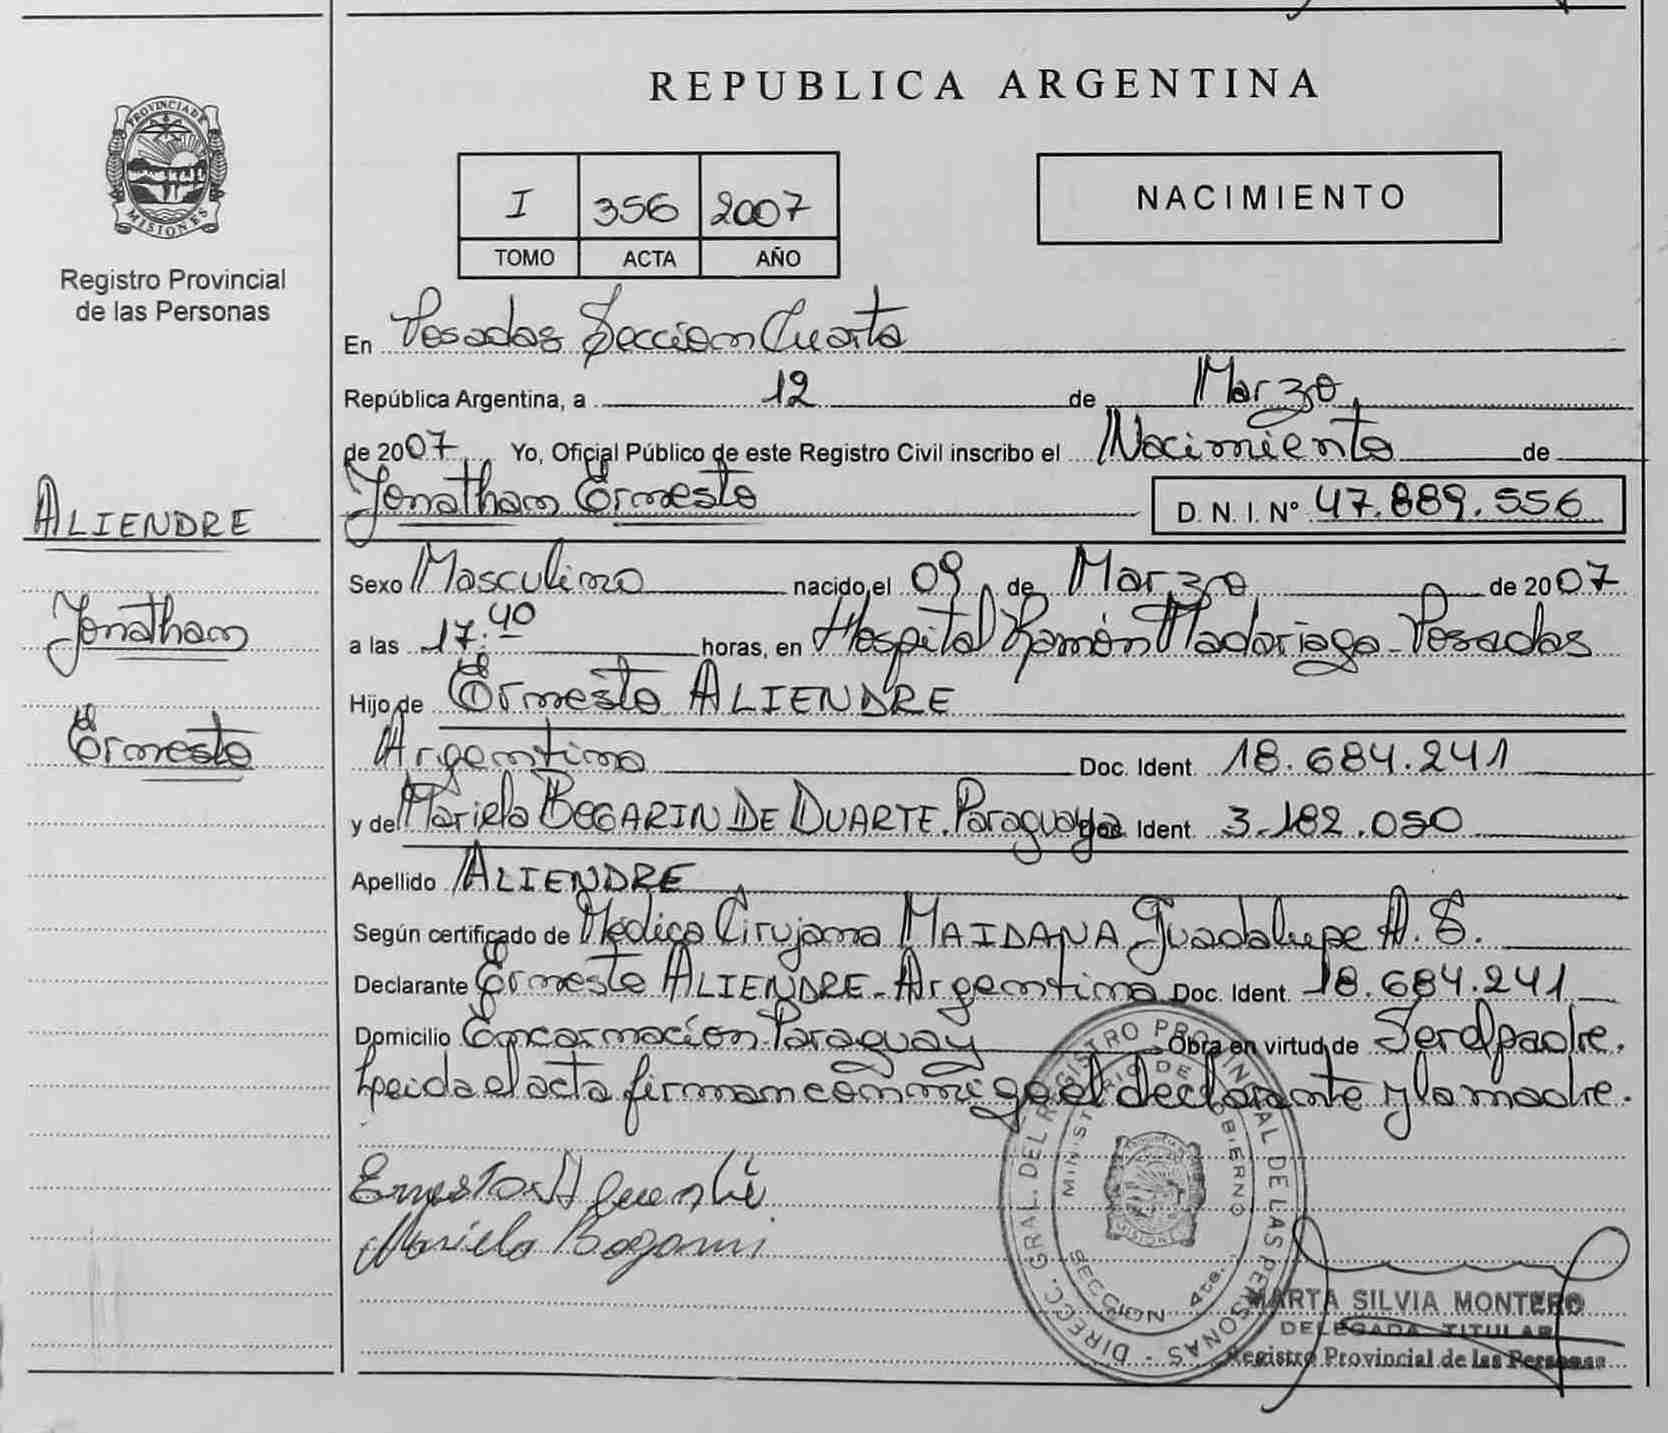 PROVINCIA DE
MISIONES
Registro Provincial
de las Personas
ALIENDRE
Jonathan
Ernesto
REPUBLICA ARGENTINA
I 356 2007
TOMO ACTA AÑO
NACIMIENTO
En Posadas Sección Cuarta
República Argentina, a 12 de Marzo
de 2007 Yo, Oficial Público de este Registro Civil inscribo el Nacimiento de
Jonathan Ernesto D. N. I. N° 47.889.556
Sexo Masculino nacido el 09 de Marzo de 2007
a las 17:40 horas, en Hospital Ramón Madariaga - Posadas
Hijo de Ernesto ALIENDRE
Argentino Doc. Ident. 18.684.241
y de Mariela BOGARIN DE DUARTE. Paraguaya Doc. Ident. 3.182.050
Apellido ALIENDRE
Según certificado de Médica Cirujana MAIDANA Guadalupe A. S.
Declarante Ernesto ALIENDRE - Argentino Doc. Ident. 18.684.241
Domicilio Encarnación - Paraguay Obra en virtud de Ser el padre.
Leida el acta firman conmigo el declarante y la madre.
Mariela Bogarin
DIRECC. GRAL. DEL REGISTRO PROVINCIAL DE LAS PERSONAS -
MINISTERIO DE GOBIERNO
MISIONES
SECCION 4ta.
MARTA SILVIA MONTERO
DELEGADA TITULAR
Registro Provincial de las Personas